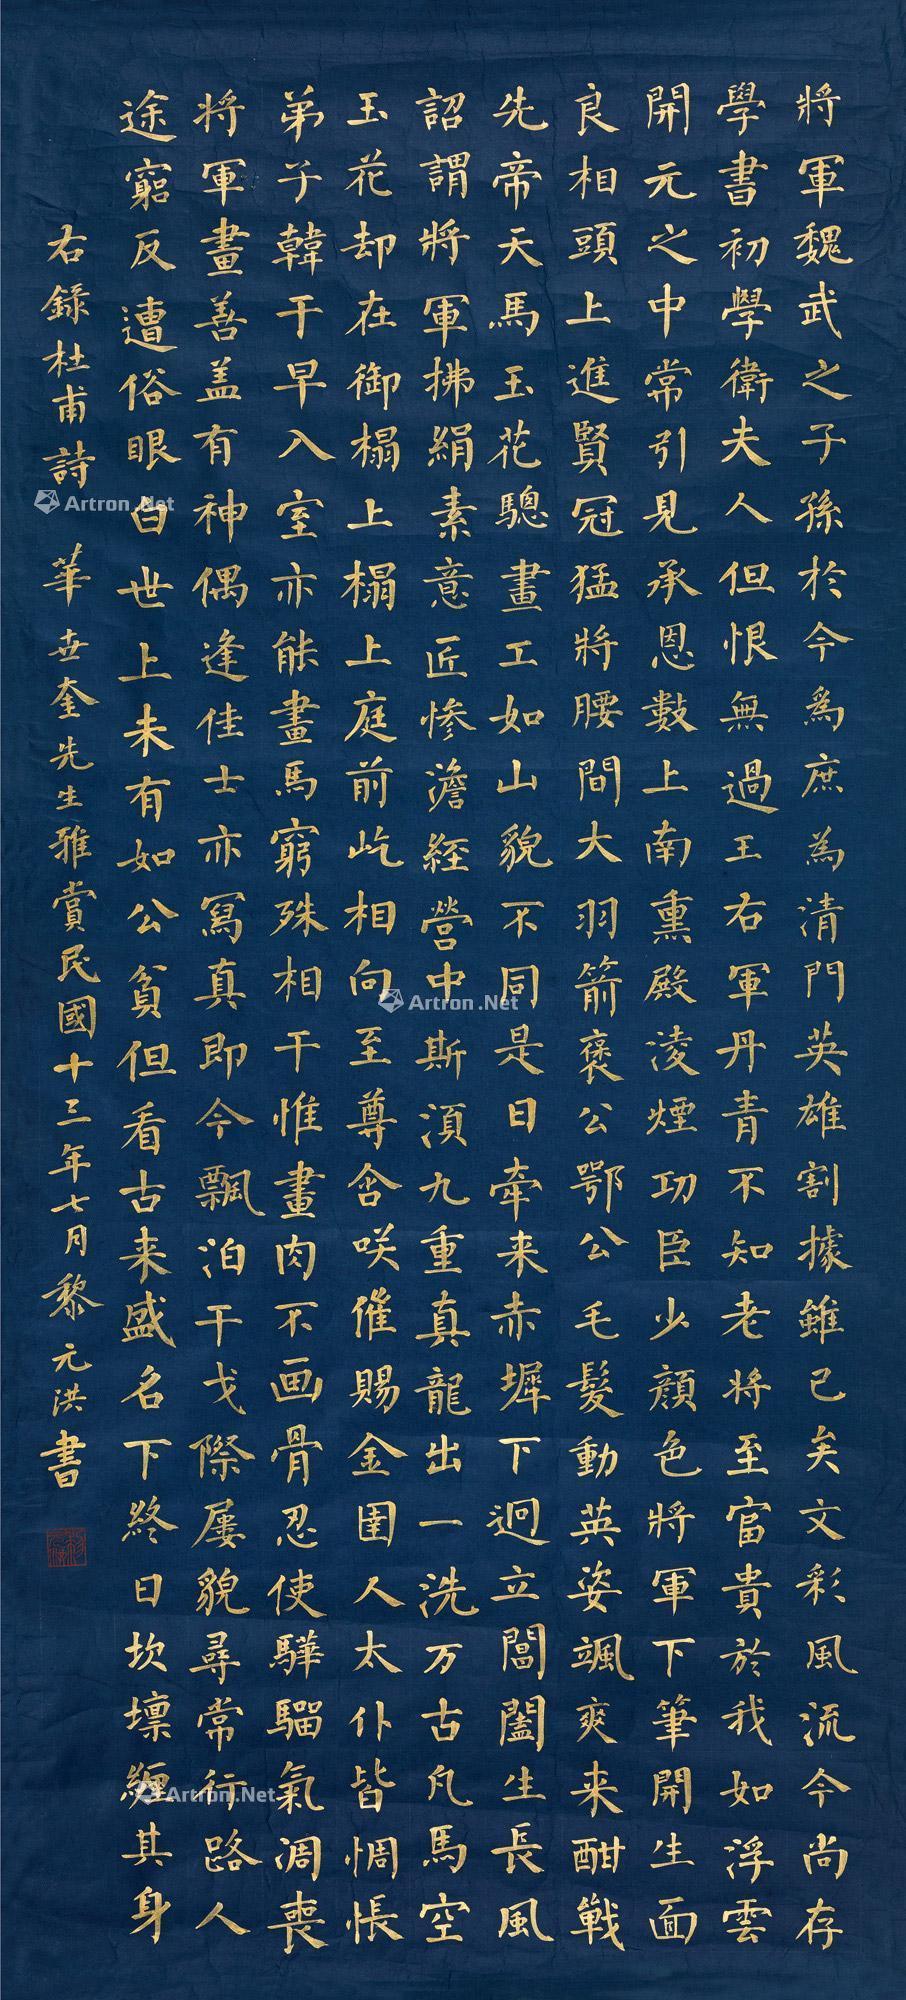 將軍魏武之子孫於今爲庶為清門英雄割據雖已矣文彩風流今尚存
學書初學衛夫人但恨無過王右軍丹青不知老將至富貴於我如浮雲
開元之中常引見承恩數上南熏殿淩煙功臣少顔色將軍下筆開生面
良相頭上進賢冠猛將腰間大羽箭褒公鄂公毛髮動英姿颯爽来酣戰
先帝天馬玉花驄畫工如山貌不同是日牽来赤墀下迥立閶闔生長風
詔謂將軍拂絹素意匠惨澹経營中斯湏九重真龍出一洗万古凡馬空
玉花却在御榻上榻上庭前屹相向至尊含咲催賜金圉人太仆皆惆悵
弟子韓干早入室亦能畫馬窮殊相干惟畫肉不画骨忍使驊騮氣凋喪
将軍畫善盖有神偶逢佳士亦寫真即今飄泊干戈際屢貌尋常行路人
途窮反遭俗眼白世上未有如公貧但看古来盛名下終日坎壈纏其身
右錄杜甫詩 華世奎先生雅賞民國十三年七月黎元洪書
Artron.Net
Artron.Net
Artron.Net